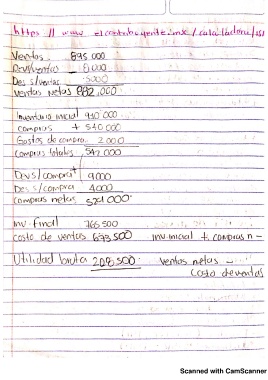 https // www elcontribuyente.mx / calculadora/
Ventas 895 000
Dev s/ventas 8 000
Des s/ventas 5000
Ventas netas 882,000
Inventario inicial 910 000
compras + 540.000
Gastos de compra 2 000
Compras totales 542 000
Dev s/compra 9,000
Des s/compra 4000
Compras netas 529 000
Inv. final 766 500
costo de ventas 673 500 inv inicial + compras n -
Utilidad bruta 208 500 ventas netas -
Costo de ventas
Scanned with CamScanner